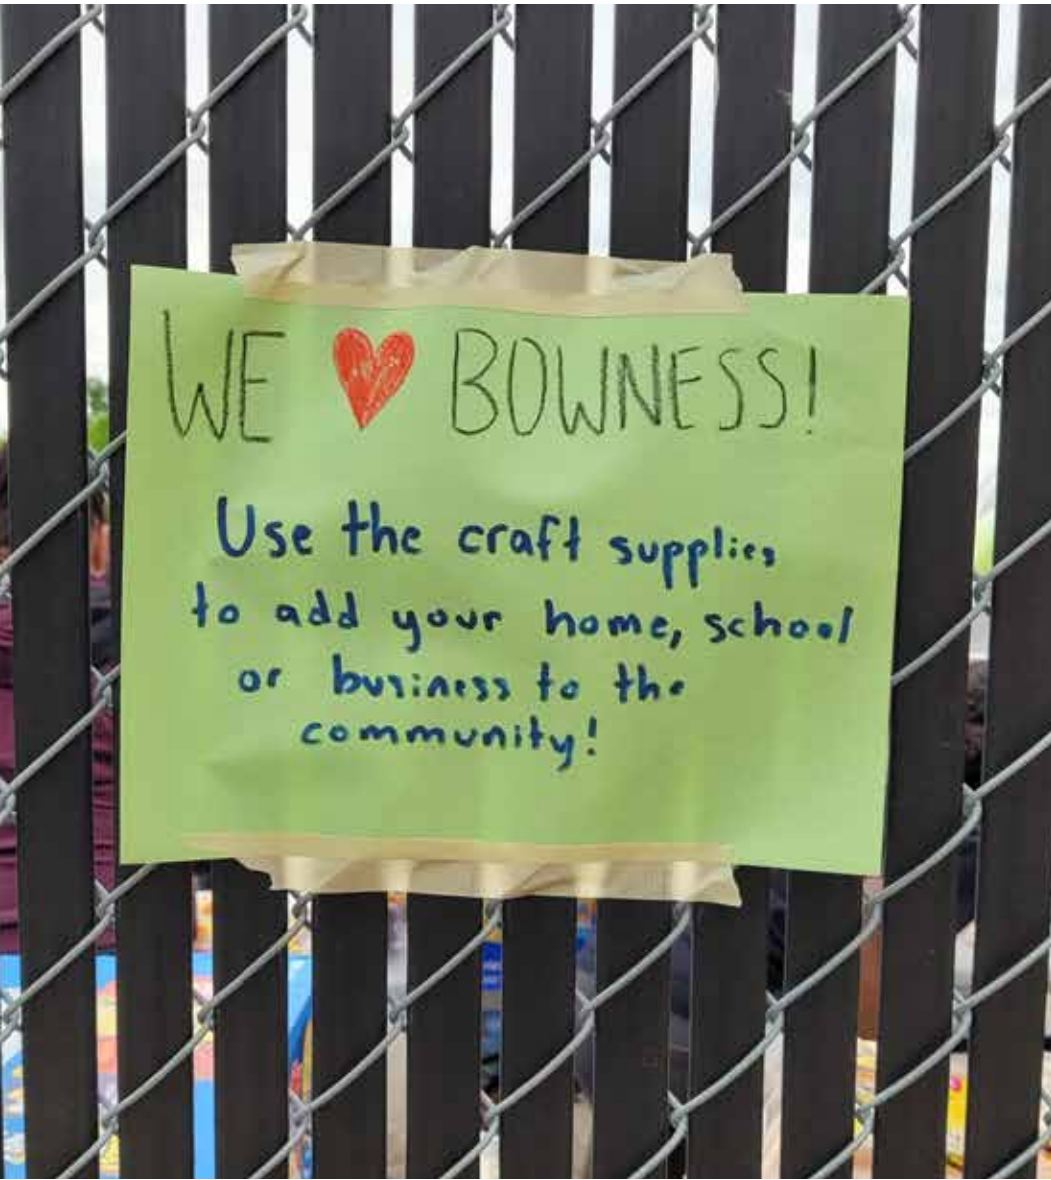 WE ❤ BOWNESS!
Use the craft supplies
to add your home, school
or business to the
community!